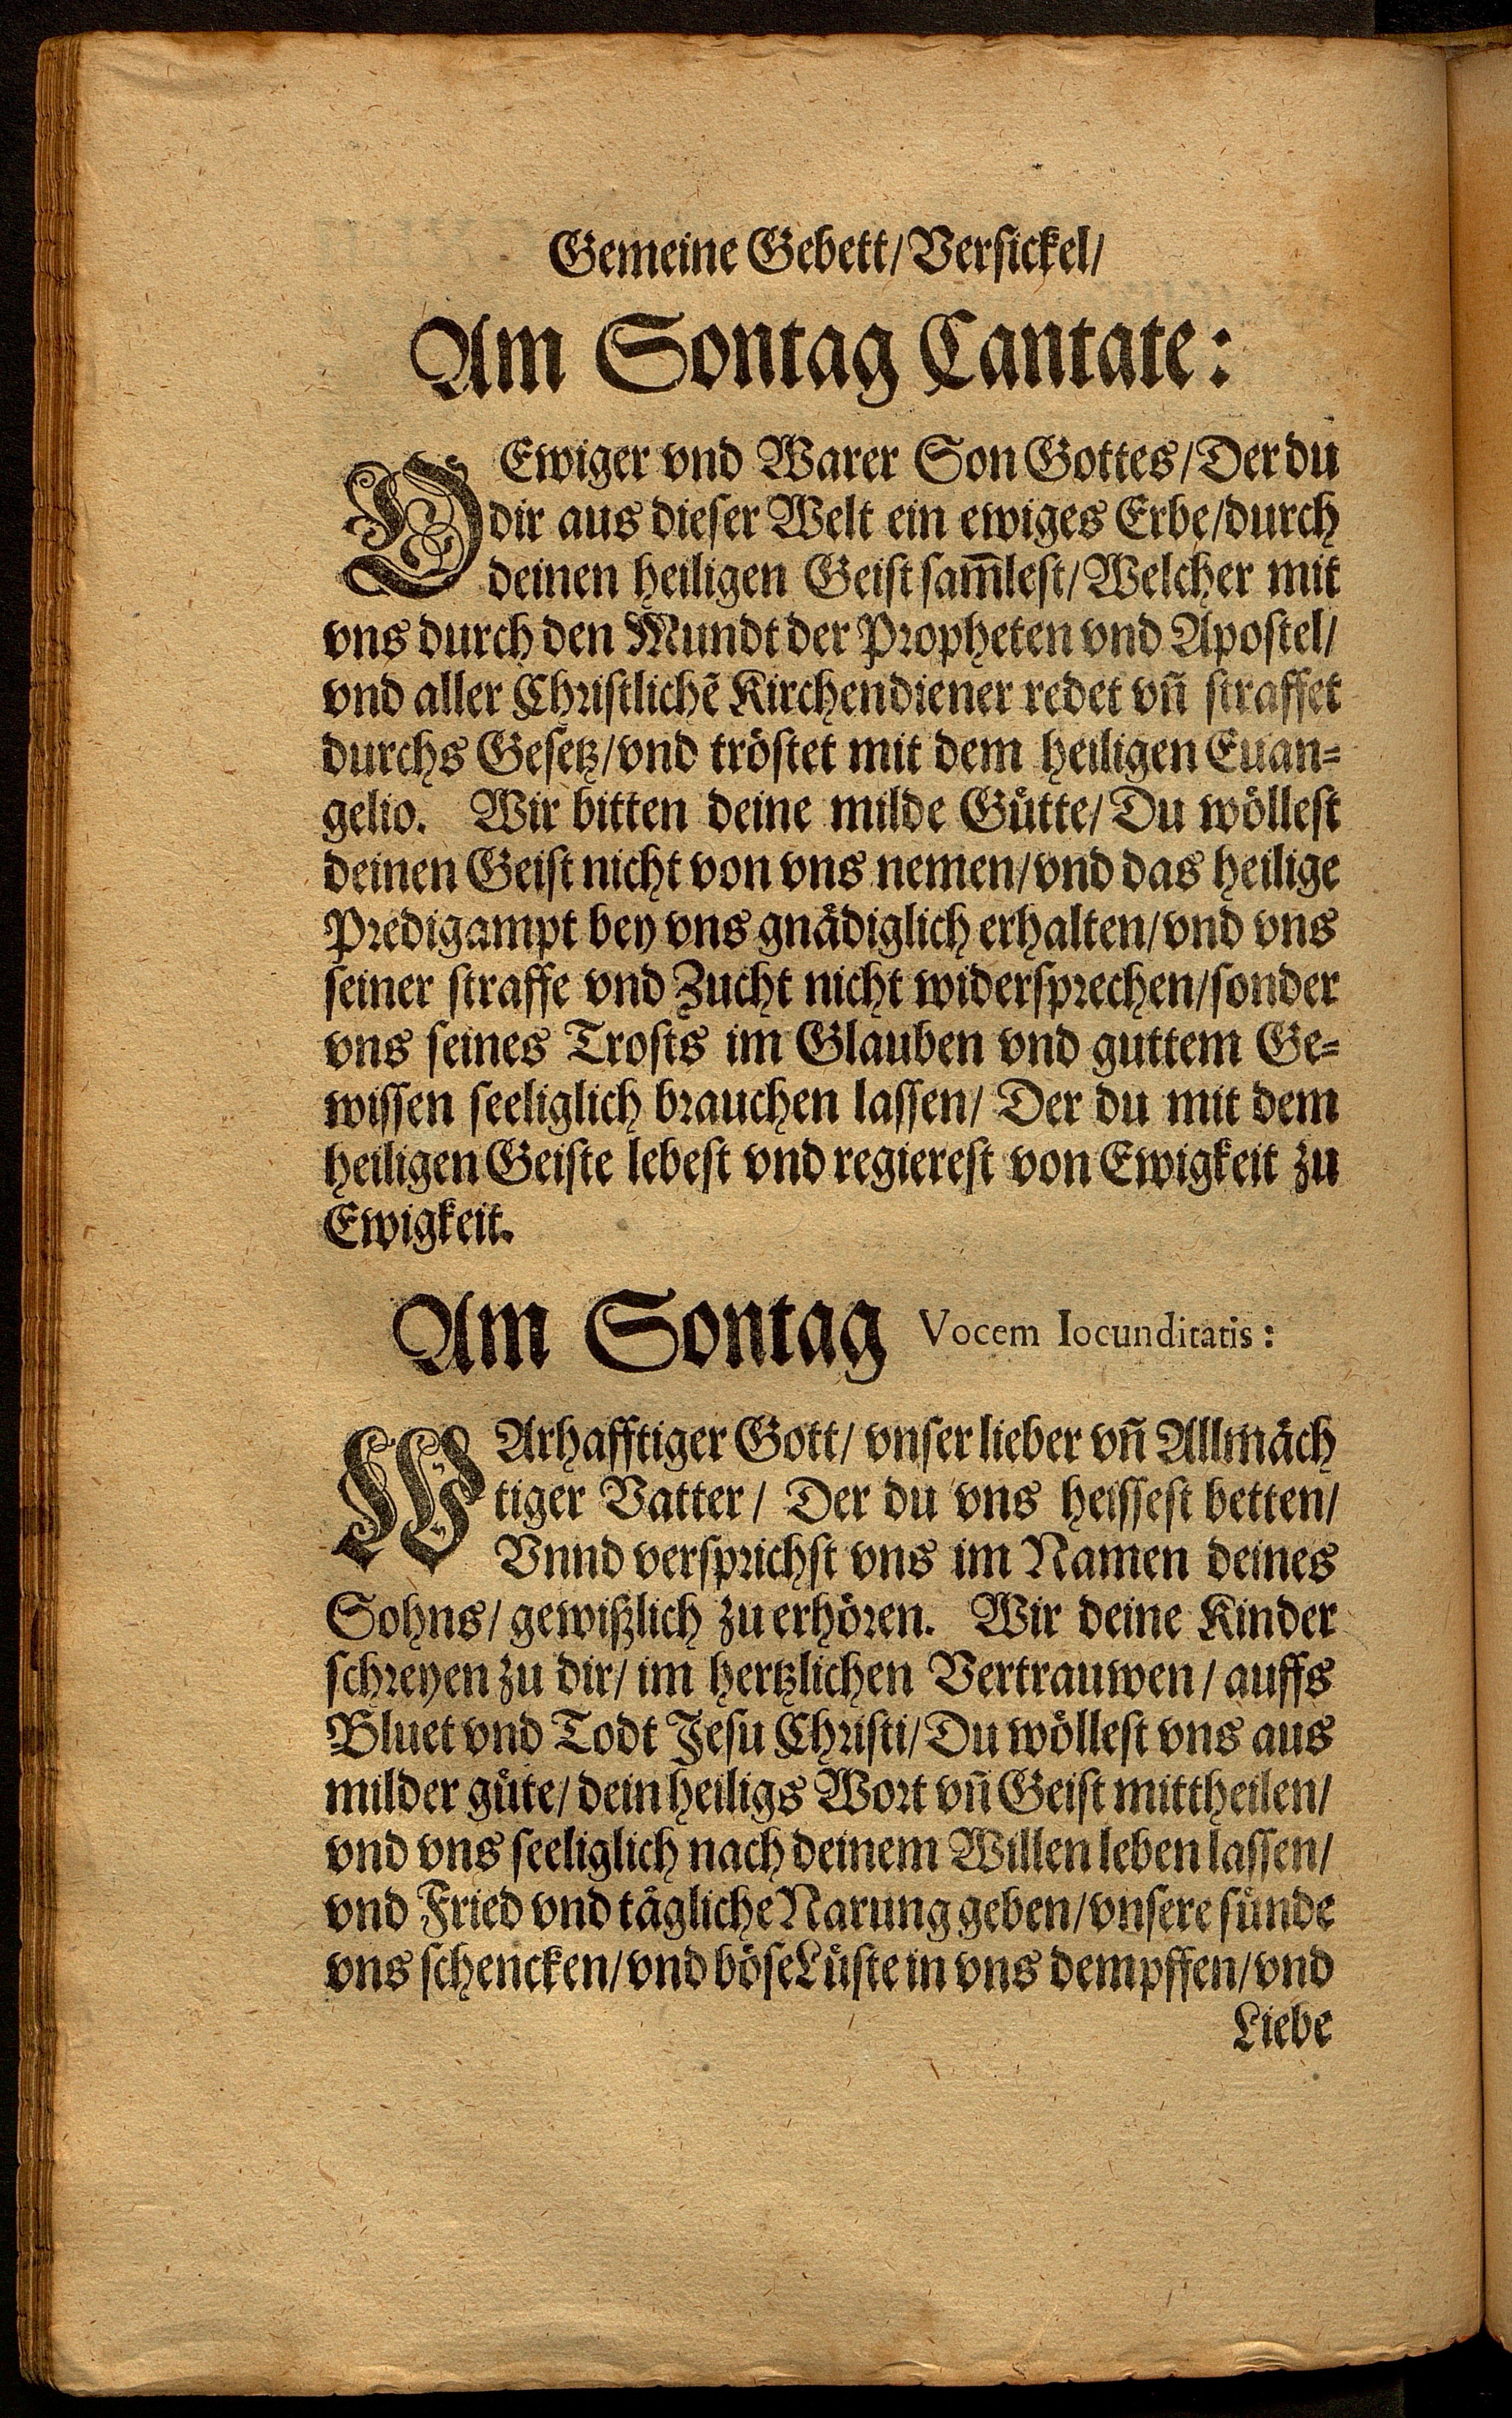 Gemeine Gebett/ Versickel/
Am Sontag Cantate:
O Ewiger vnd Warer Son Gottes/ Der du
dir aus dieser Welt ein ewiges Erbe/ durch
deinen heiligen Geist sam̄lest/ Welcher mit
vns durch den Mundt der Propheten vnd Apostel/
vnd aller Christlichẽ Kirchendiener redet vn̄ straffet
durchs Gesetz/ vnd tröstet mit dem heiligen Euan=
gelio. Wir bitten deine milde Gütte/ Du wöllest
deinen Geist nicht von vns nemen/ vnd das heilige
Predigampt bey vns gnädiglich erhalten/ vnd vns
seiner straffe vnd Zucht nicht widersprechen/ sonder
vns seines Trosts im Glauben vnd guttem Ge=
wissen seeliglich brauchen lassen/ Der du mit dem
heiligen Geiste lebest vnd regierest von Ewigkeit zu
Ewigkeit.
Am Sontag Vocem Iocunditatis:
WArhafftiger Gott/ vnser lieber vn̄ Allmäch
tiger Vatter/ Der du vns heissest betten/
Vnnd versprichst vns im Namen deines
Sohns/ gewißlich zu erhören. Wir deine Kinder
schreyen zu dir/ im hertzlichen Vertrauwen/ auffs
Bluet vnd Todt Jesu Christi/ Du wöllest vns aus
milder güte/ dein heiligs Wort vn̄ Geist mittheilen/
vnd vns seeliglich nach deinem Willen leben lassen/
vnd Fried vnd tägliche Narung geben/ vnsere sünde
vns schencken/ vnd böse Lüste in vns dempffen/ vnd
Liebe